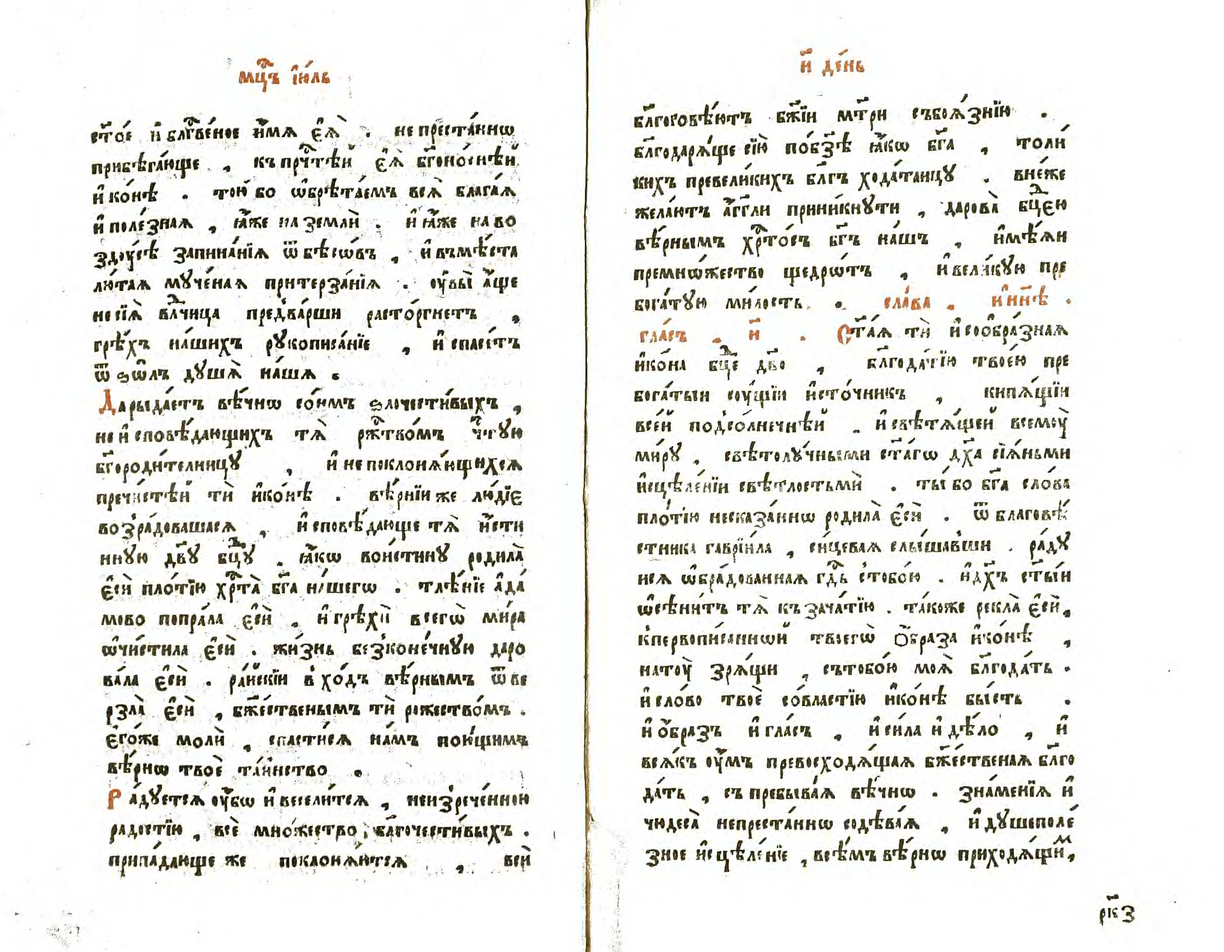 мц҇ъ і҆ю́ль
ст҃о́е и҆ бл҃гⷭ҇ве́ное и҆́мя є҆ѧ̀ . не преста́ннѡ
прибѣга́юще , къ прⷱ҇тѣй є҆ѧ̀ бг҃оно́снѣй
и҆ко́нѣ . то́ю бо ѡ҆брѣта́емъ всѧ̀ блага́ѧ
и҆ поле́знаѧ , ꙗ҆́же на землѝ . и҆ ꙗ҆́же на во
здꙋ́сѣ запина́нїѧ ѿ бѣсо́въ , и҆ въ мѣ́ста
лю́таѧ мꙋче́наѧ притерза́нїѧ . ѹ҆вы̀ а҆́ще
не сїѧ̀ влⷣчица предвари́вши расто́ргнетъ ,
грѣ́хъ на́шихъ рꙋкописа́нїе , и҆ спасе́тъ
ѿ ѕѡ́лъ дꙋ́шѧ на́шѧ .
Да рыда́етъ вѣ́чнѡ со́нмъ ѕлочести́выхъ ,
не и҆сповѣ́дающихъ тѧ̀ рж҃тво́мъ чⷭ҇тꙋю
бг҃ороди́телницꙋ , и҆ не поклонѧ́ющихсѧ
пречи́стѣй тѝ и҆ко́нѣ . вѣ́рнїи же лю́дїе
возра́довашасѧ , и҆сповѣ́дающе тѧ̀ и҆́сти
ннꙋю дв҃ꙋ бц҃ꙋ . ꙗ҆́кѡ вои́стинꙋ родила̀
є҆сѝ пло́тїю хрⷭ҇та̀ бг҃а на́шегѡ . тлѣ́нїе а҆да́
мово попра́ла є҆сѝ , и҆ грѣхѝ всегѡ̀ ми́ра
ѡ҆чи́стила є҆сѝ . жи́знь безконе́чнꙋю даро
ва́ла є҆сѝ . ра́йскїи в́ходъ вѣ́рнымъ ѿве
рзла̀ є҆сѝ , бжⷭ҇е́ственымъ тѝ рожество́мъ .
є҆го́же молѝ , спасти́сѧ на́мъ пою́щимъ
вѣ́рнѡ твоѐ та́инство .
Ра́дꙋетсѧ ѹ҆́бѡ и҆ весели́тсѧ , неизрече́нною
ра́достїю , всѐ мно́жество благочести́выхъ .
припа́дающе же поклонѧ́ютсѧ , всѝ
и҃ де́нь
бл҃гоговѣ́ютъ бж҃їи мт҃ри съ боѧ́знїю .
бл҃годарѧ́ще сїю̀ по бз҃ѣ ꙗ҆́кѡ бг҃а , толи́
кихъ превели́кихъ бл҃гъ хода́таицꙋ . в не́же
жела́ютъ а҆́гг҃ли прини́кнꙋти , дарова̀ бц҃ею
вѣ́рнымъ хрⷭ҇то́съ бг҃ъ на́шъ , и҆мѣ́ѧи
премно́жество щедро́тъ , и҆ вели́кꙋю пре
бога́тꙋю ми́лость . сла́ва . и҆ нн҃ѣ .
гла́съ . и҃ . Ст҃а́ѧ тѝ и҆ сообра́знаѧ
и҆ко́на бц҃е дв҃о , бл҃года́тїю твое́ю пре
бога́тыи сѹ́щїи и҆сто́чникъ , кипѧ́щїи
все́й подсо́лнечнѣй . и҆ свѣтѧ́щей всемѹ̀
ми́рꙋ , свѣтолꙋ́чными ст҃а́гѡ дх҃а сїѧ́ньми
и҆сцѣле́нїи свѣ́тлостьмѝ . ты́ бо бг҃а сло́ва
пло́тїю несказа́ннѡ родила̀ є҆сѝ . ѿ благовѣ́
стника гаврїи́ла , си́цеваѧ слы́шавши . ра́дꙋ
исѧ ѡ҆бра́дованнаѧ гдⷭ҇ь с тобо́ю . и҆ дх҃ъ ст҃ы́и
ѡ҆сѣни́тъ тѧ̀ къ зача́тїю . та́коже рекла̀ є҆сѝ,
к первопи́саннѡй твоегѡ̀ ѻ҆́браза и҆ко́нѣ ,
на тѹ̀ зрѧ́щи , съ тобо́ю моѧ̀ бл҃года́ть .
и҆ сло́во твоѐ со вла́стїю и҆ко́нѣ бы́сть .
и҆ ѻ҆́бразъ и҆ гла́съ , и҆ си́ла и҆ дѣ́ло , и҆
всѧ́къ ѹ҆́мъ превосходѧ́щаѧ бжⷭ҇е́ственаѧ бл҃го
да́ть , съ пребыва́ѧ вѣ́чнѡ . зна́менїѧ и҆
чюдеса̀ непреста́ннѡ содѣва́ѧ , и҆ дꙋшеполе́
зное и҆сцѣле́нїе , всѣ́мъ вѣ́рнѡ приходѧ́щиⷨ,
рк҃з